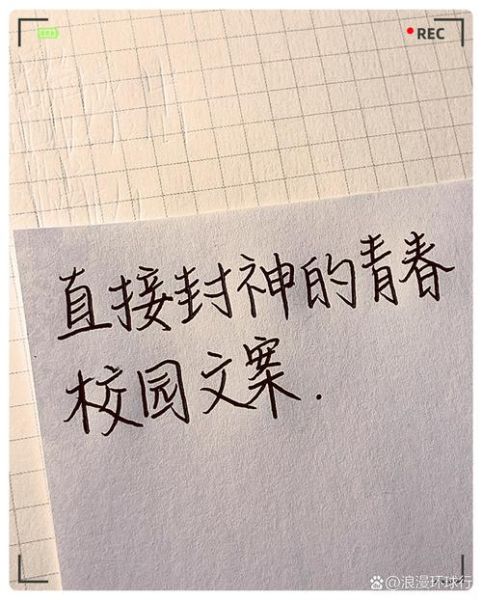 REC
直接封神的青春
校园文案.
@浪漫环球行